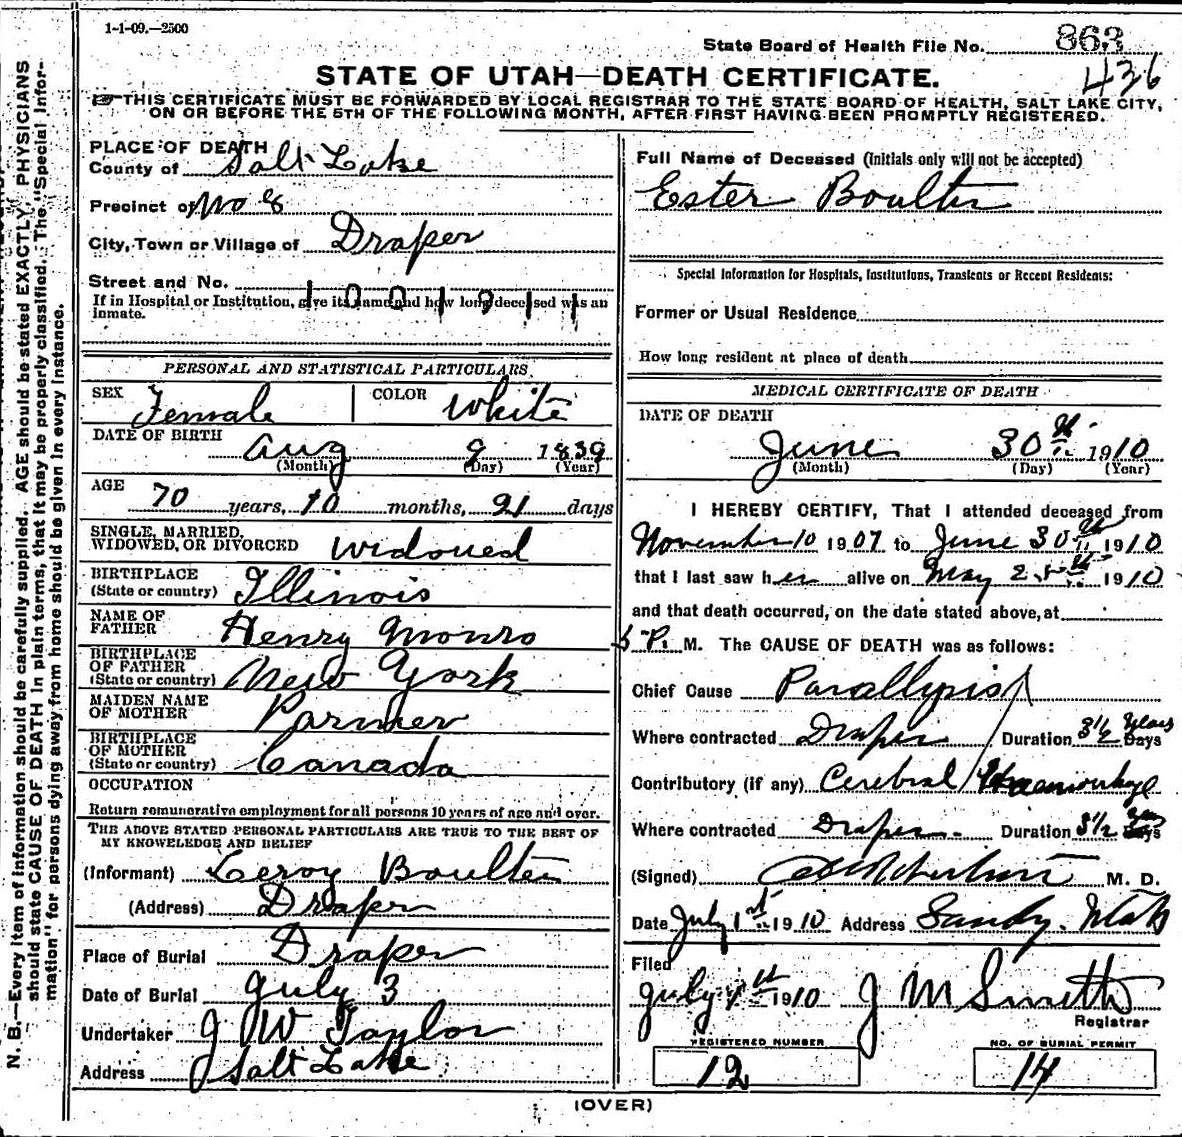 1-1-09.—2500
State Board of Health File No. 863
436
STATE OF UTAH—DEATH CERTIFICATE.
THIS CERTIFICATE MUST BE FORWARDED BY LOCAL REGISTRAR TO THE STATE BOARD OF HEALTH, SALT LAKE CITY,
ON OR BEFORE THE 5TH OF THE FOLLOWING MONTH, AFTER FIRST HAVING BEEN PROMPTLY REGISTERED.
PLACE OF DEATH
County of Salt Lake
Precinct of No 8
City, Town or Village of Draper
Street and No.
1001911
If in Hospital or Institution, give its name and how long deceased was an
inmate.
PERSONAL AND STATISTICAL PARTICULARS.
SEX Female COLOR White
DATE OF BIRTH Aug 9 1839
(Month) (Day) (Year)
AGE 70 years, 10 months, 21 days
SINGLE, MARRIED,
WIDOWED, OR DIVORCED Widowed
BIRTHPLACE
(State or country) Illinois
NAME OF
FATHER Henry Monro
BIRTHPLACE
OF FATHER
(State or country) New York
MAIDEN NAME
OF MOTHER Parmer
BIRTHPLACE
OF MOTHER
(State or country) Canada
OCCUPATION
Return remunerative employment for all persons 10 years of age and over.
THE ABOVE STATED PERSONAL PARTICULARS ARE TRUE TO THE BEST OF
MY KNOWLEDGE AND BELIEF
(Informant) Leroy Boulter
(Address) Draper
Place of Burial Draper
Date of Burial July 3
Undertaker J W Taylor
Address Salt Lake
Full Name of Deceased (Initials only will not be accepted)
Ester Boulter
Special Information for Hospitals, Institutions, Transients or Recent Residents:
Former or Usual Residence
How long resident at place of death
MEDICAL CERTIFICATE OF DEATH
DATE OF DEATH
June 30th 1910
(Month) (Day) (Year)
I HEREBY CERTIFY, That I attended deceased from
November 10 1907 to June 30th 1910
that I last saw her alive on May 1910
and that death occurred, on the date stated above, at
P. M. The CAUSE OF DEATH was as follows:
Chief Cause Parallysis
Where contracted Draper Duration 3½ Years Days
Contributory (if any) Cerebral Haemorrhage
Where contracted Draper Duration 3½ Days
(Signed) M. D.
Date July 1st 1910 Address Sandy, Utah
Filed
July 1910 J M Smith
Registrar
REGISTERED NUMBER
12
NO. OF BURIAL PERMIT
14
(OVER)
N. B.—Every item of information should be carefully supplied. AGE should be stated EXACTLY. PHYSICIANS
should state CAUSE OF DEATH in plain terms, that it may be properly classified. The "Special Infor-
mation" for persons dying away from home should be given in every instance.